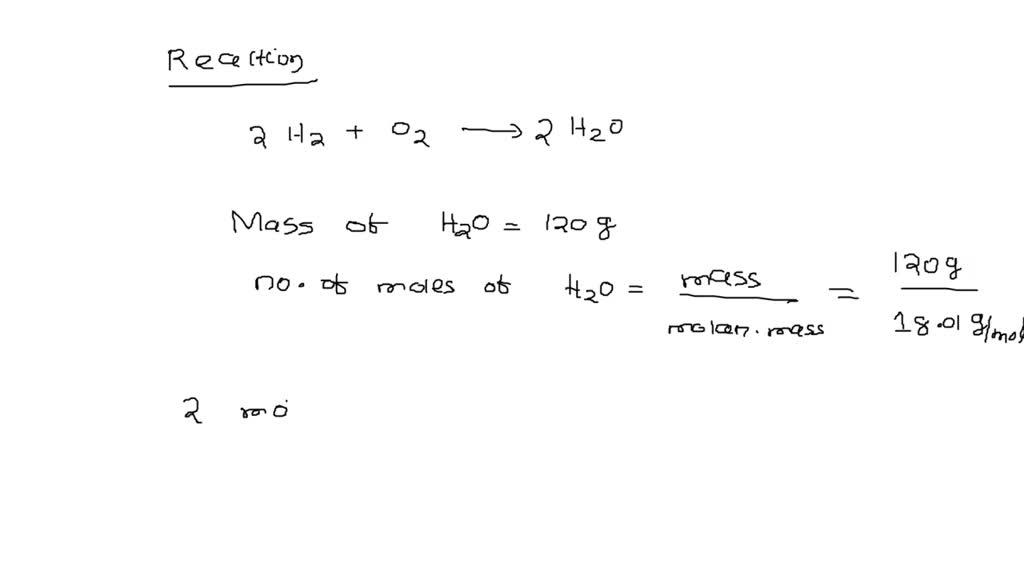 Reaction
2 H2 + O2 → 2 H2O
Mass of H2O = 120 g
no. of moles of H2O = mass / molar. mass = 120g / 18.01 g/mol
2 mo